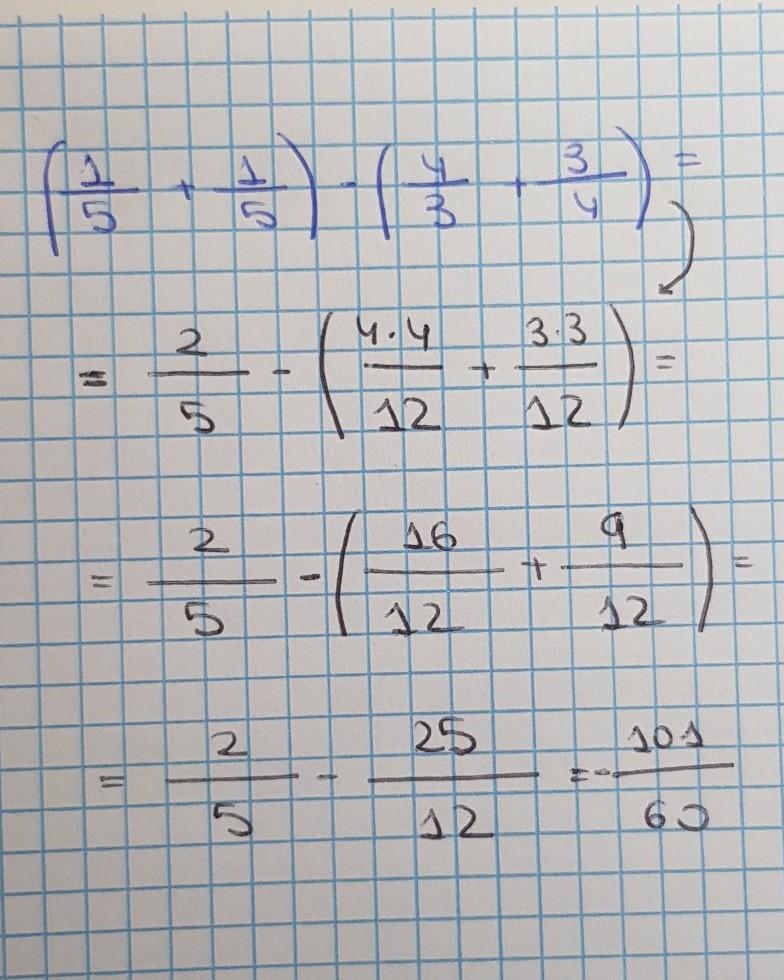 (1/5 + 1/5) - (4/3 + 3/4) =
= 2/5 - (4·4/12 + 3·3/12) =
= 2/5 - (16/12 + 9/12) =
= 2/5 - 25/12 = - 101/60